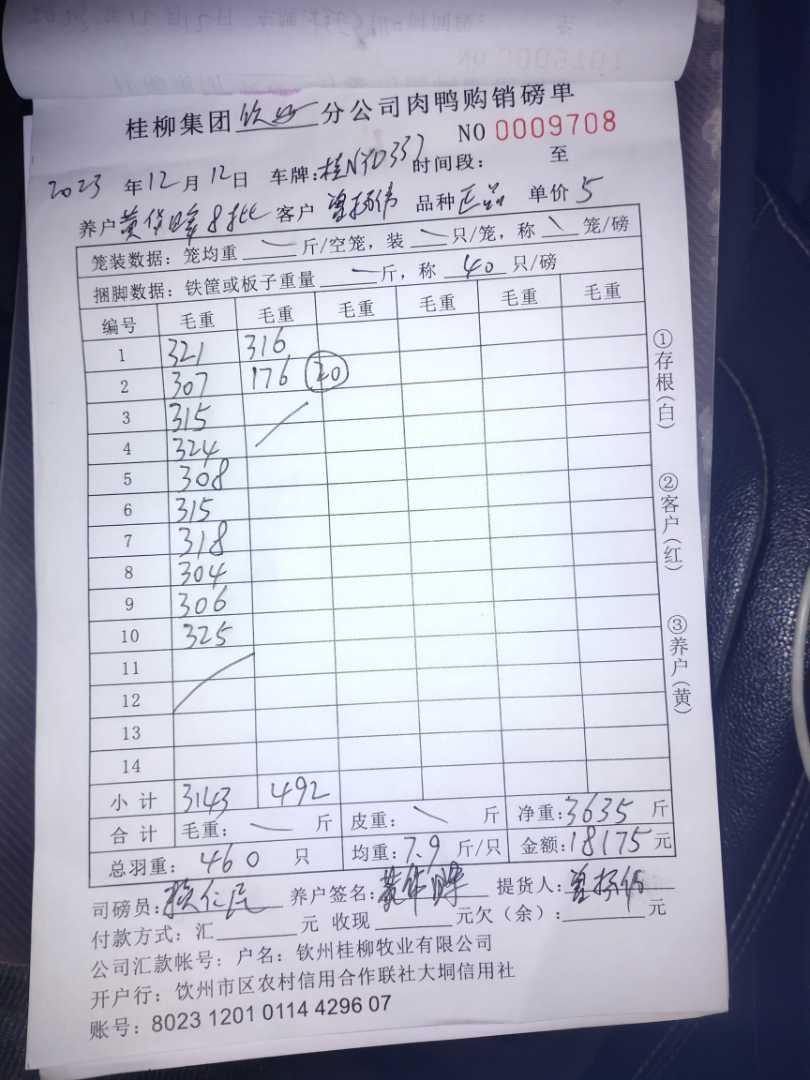 桂柳集团钦州分公司肉鸭购销磅单
NO 0009708
2023年12月12日 车牌:桂NYD337 时间段: 至
养户 黄华峰8批 客户 曾扬伟 品种 正品 单价 5
笼装数据: 笼均重 斤/空笼, 装 只/笼, 称 笼/磅
捆脚数据: 铁筐或板子重量 斤, 称 40 只/磅
编号 毛重 毛重 毛重 毛重 毛重 毛重
1 321 316
2 307 176 20
3 315
4 324
5 308
6 315
7 318
8 304
9 306
10 325
11
12
13
14
小计 3143 492
合计 毛重: 斤 皮重: 斤 净重:3635 斤
总羽重: 460 只 均重:7.9 斤/只 金额:18175元
司磅员: 养户签名:黄华峰 提货人:曾扬伟
付款方式: 汇 元 收现 元欠(余): 元
公司汇款帐号: 户名: 钦州桂柳牧业有限公司
开户行: 钦州市区农村信用合作联社大垌信用社
账号: 8023 1201 0114 4296 07
①存根(白)
②客户(红)
③养户(黄)